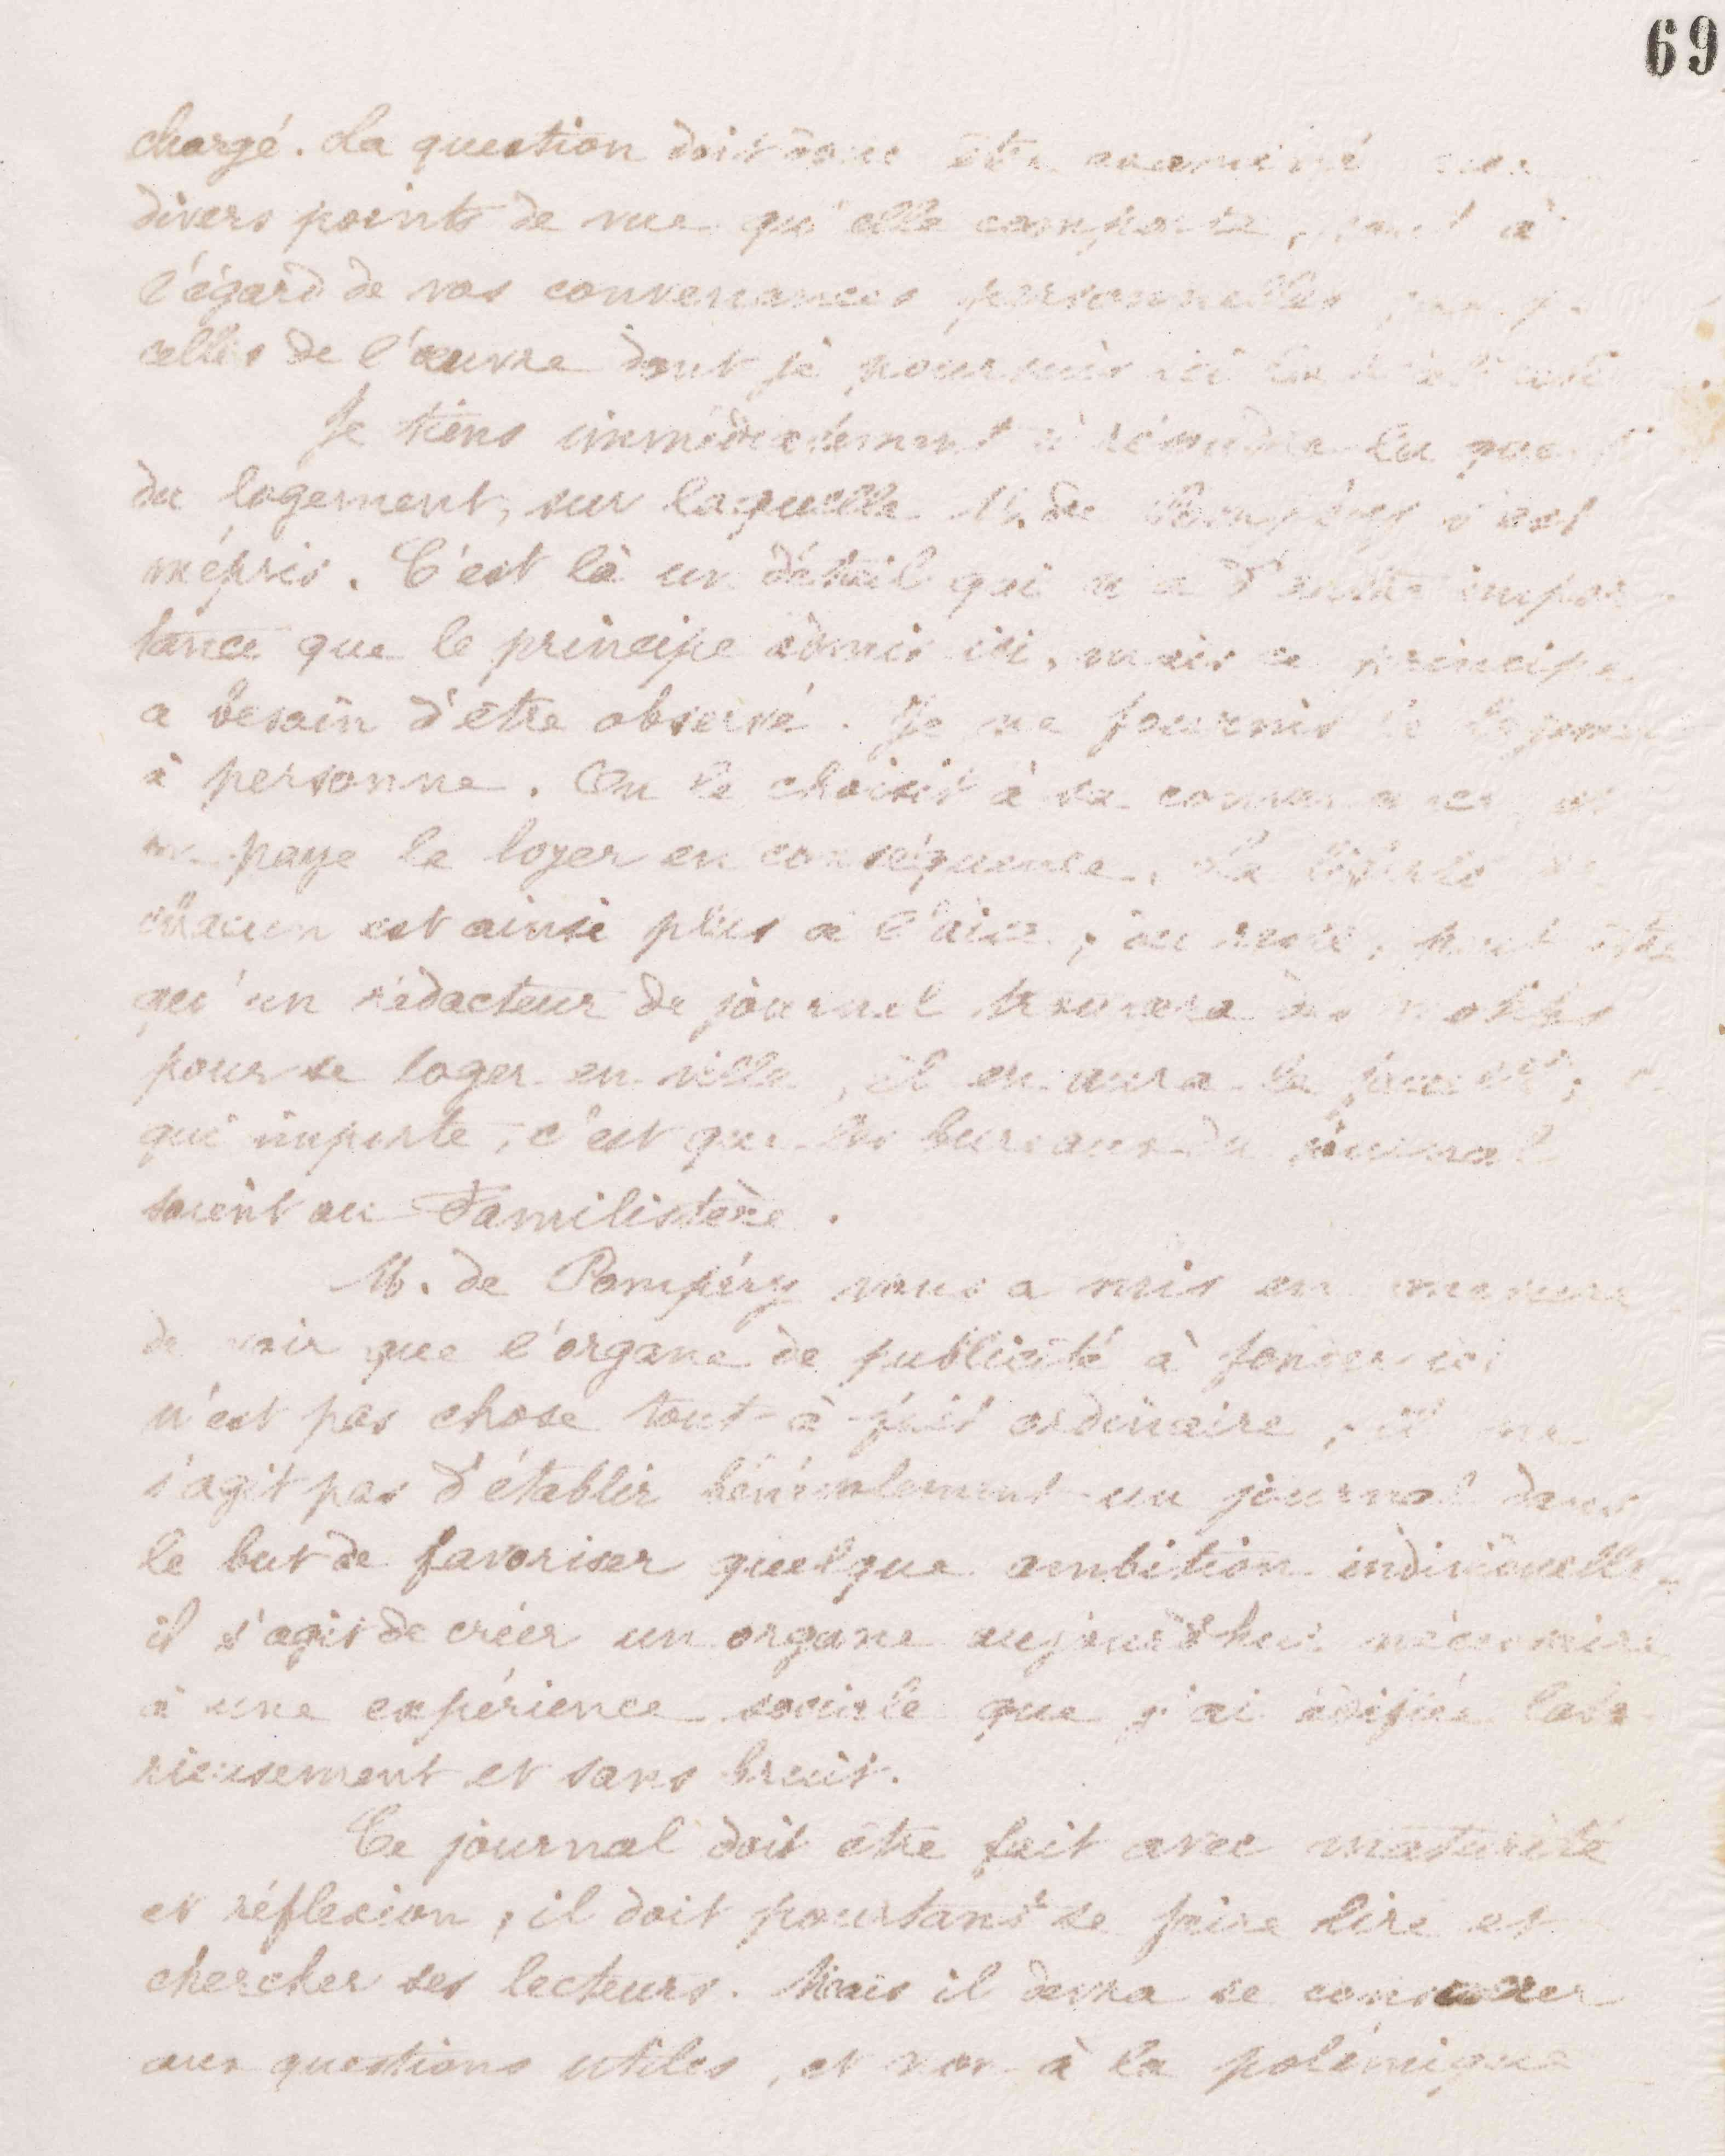 69
chargé. La question doit donc être examiné
divers points de vue qu'elle comporte, tant à
l'égard de vos convenances personnelles
celles de l'œuvre dont je poursuis ici
Je tiens immédiatement à résoudre la
du logement, sur laquelle M. de Pompéry s'est
mépris. C'est là un détail qui n'a d'autre impor-
tance que le principe admis ici, mais ce principe
a besoin d'être observé. Je ne fournis le logement
à personne. On le choisit à sa convenance et
on paye le loyer en conséquence. La liberté de
chacun est ainsi plus à l'aise ; du reste, peut être
qu'un rédacteur de journal trouvera des motifs
pour se loger en ville, il en aura la faculté ;
qui importe, c'est que les bureaux du journal
soient au Familistère.
M. de Pompéry vous a mis en mesure
de voir que l'organe de publicité à fonder ici
n'est pas chose tout à fait ordinaire ; il ne
s'agit pas d'établir bénévolement un journal dans
le but de favoriser quelque ambition individuelle,
il s'agit de créer un organe aujourd'hui nécessaire
à une expérience sociale que j'ai édifiée labo-
rieusement et sans bruit.
Ce journal doit être fait avec maturité
et réflexion, il doit pourtant se faire lire et
chercher ses lecteurs. Mais il devra se consacrer
aux questions utiles, et non à la polémique